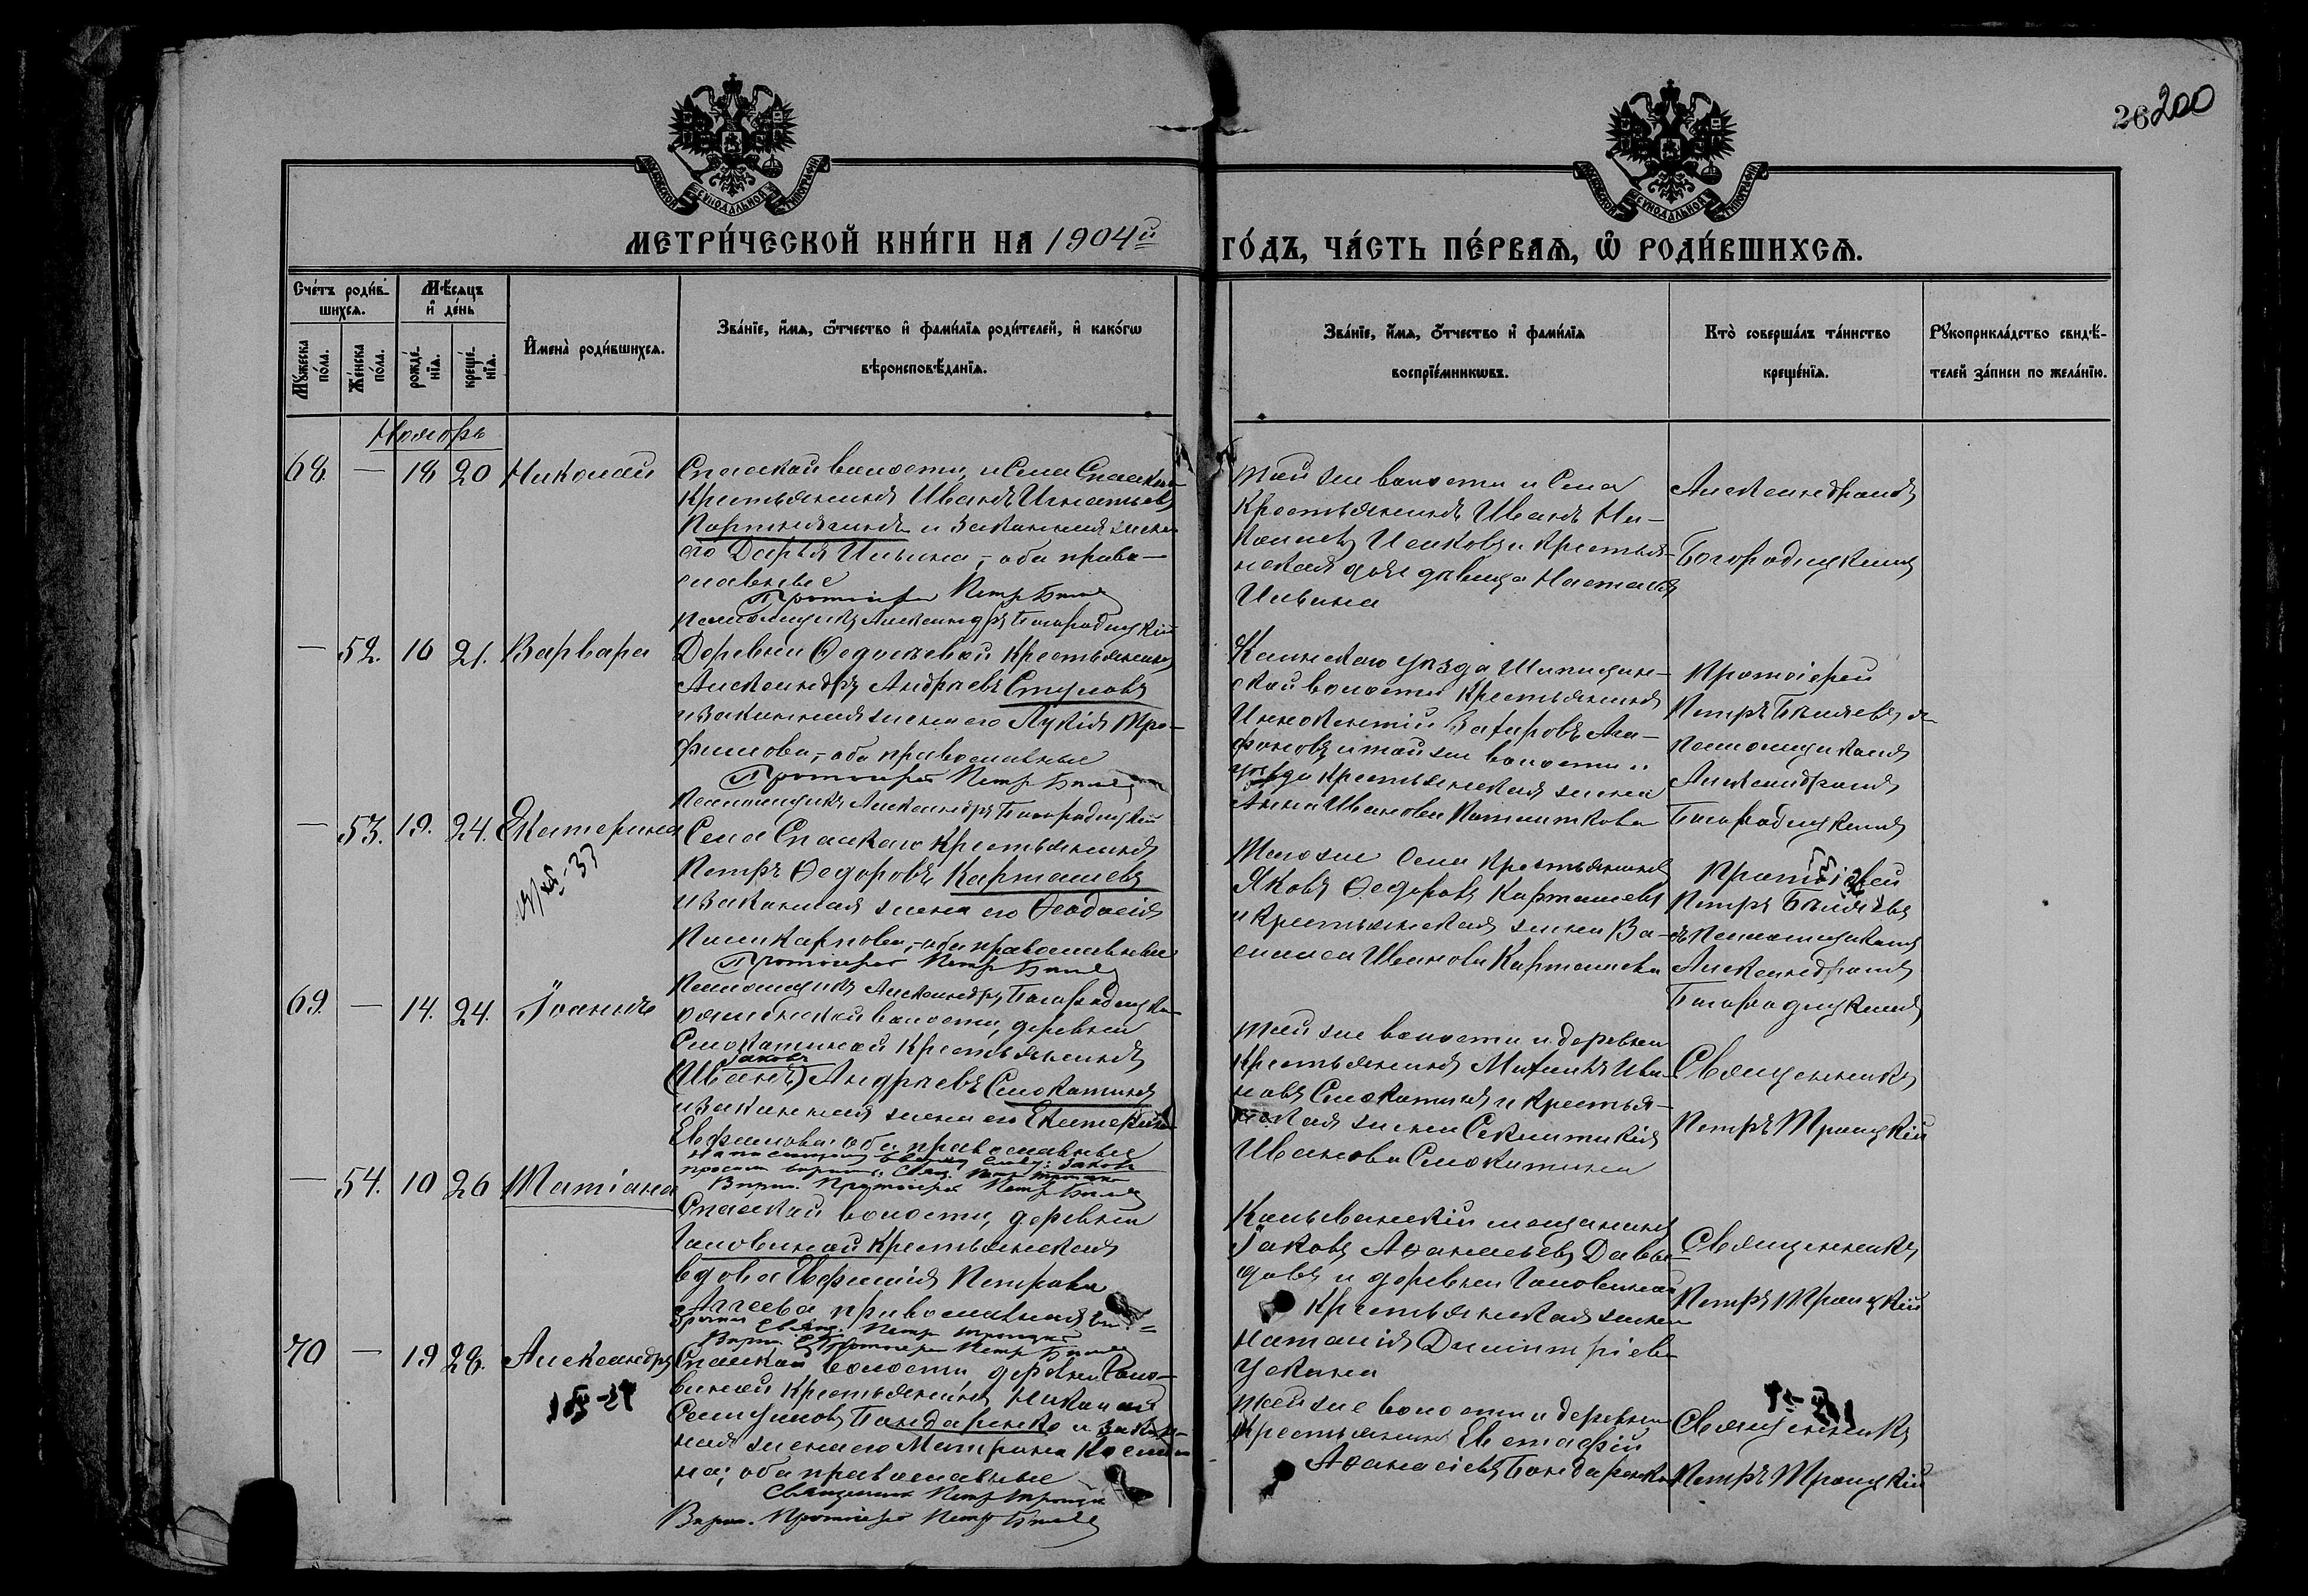 26 200
МОСКОВСКОЙ СѴНОДАЛЬНОЙ ТИПОГРАФІИ
МОСКОВСКОЙ СѴНОДАЛЬНОЙ ТИПОГРАФІИ
МЕТРИ́ЧЕСКОЙ КНИ́ГИ НА 1904й
ГО́ДЪ, ЧА́СТЬ ПЕ́РВАѦ, Ѽ РОДИ́ВШИХСѦ.
Сче́тъ роди́в-
шихсѧ.
Мꙋ́жеска по́ла.
Же́нска по́ла.
Мѣ́сѧцъ
и҆ де́нь
рожде́-нїѧ.
креще́-нїѧ.
И҆мена̀ роди́вшихсѧ.
Зва́нїе, и҆́мѧ, ѻ҆́тчество и҆ фами́лїѧ роди́телей, и҆ како́гѡ
вѣроисповѣ́данїѧ.
Зва́нїе, и҆́мѧ, ѻ҆́тчество и҆ фами́лїѧ
воспрїе́мникѡвъ.
Кто̀ соверша́лъ та́инство
креще́нїѧ.
Рꙋкоприкла́дство свидѣ́-
телей за́писи по жела́нїю.
Ноябрь
68. — 18 20 Николай
Спасской волости, и Села Спаскаго
Крестьянинъ Иванъ Игнатьевъ
и законная жена
его Дарья Ильина, оба право-
славные
Протоіерей Петръ Бѣляевъ
Псаломщикъ Александръ Богородицкій
той же волости и Села
Крестьянинъ Иванъ Ни-
колаевъ Исаковъ и Крестья-
нская дочь дѣвица Наталья
Ильина
Александромъ
Богородицкимъ
— 52. 16 21. Варвара
Деревни Ѳедосѣевой Крестьянинъ
Александръ Андреевъ Стуловъ
и законная жена его Лукія Тро-
фимова, оба православные
Протоіерей Петръ Бѣляевъ
Псаломщикъ Александръ Богородицкій
Каинскаго уѣзда Шипицин-
ской волости Крестьянинъ
Иннокентій Захаровъ Ага-
фоновъ и той же волости и
уѣзда крестьянская жена
Анна Иванова
Протоіерей
Петръ Бѣляевъ съ
псаломщикомъ
Александромъ
Богородицкимъ
— 53. 19. 24. Екатерина
Села Спаскаго Крестьянинъ
Петръ Ѳедоровъ Карташевъ
и законная жена его Ѳеодосія
Поликарпова, оба православные
Протоіерей Петръ Бѣляевъ
Псаломщикъ Александръ Богородицкій
Тогоже Села Крестьянинъ
Яковъ Ѳедоровъ Карташевъ
и Крестьянская жена Ва-
силиса Иванова Карташева
Протоіерей
Петръ Бѣляевъ
съ псаломщикомъ
Александромъ
Богородицкимъ
69. — 14. 24. Іоаннъ
волости, деревни
Смокатиной Крестьянинъ
Іаковъ
(Иванъ) Андреевъ Смокатинъ
и законная жена его Екатерина
Евфимова оба православные
Протоіерей Петръ Бѣляевъ
той же волости и деревни
Крестьянинъ Михаилъ Ива-
новъ Смокатинъ и крестья-
нская жена Секлитикія
Иванова Смокатина
Священникъ
Петръ Троицкій
— 54. 10 26 Татіана
Спасской волости, деревни
Головиной Крестьянская
вдова Евфимія Петрова
Агеева православная
Протоіерей Петръ Бѣляевъ
Колыванскій мещанинъ
Іаковъ Аѳанасьевъ Давы-
довъ и деревни Головиной
Крестьянская жена
Наталія Димитріева
Ускина
Священникъ
Петръ Троицкій
70 — 19 28. Александръ
Спаской волости, деревни Голо-
виной Крестьянинъ Николай
Бондаренко и закон-
ная жена его Матрона
на; оба православные
Священникъ Петръ Троицкій
Протоіерей Петръ Бѣляевъ
той же волости и деревни
Крестьянинъ Евстафій
Аѳанасіевъ Бондаренко
Священникъ
Петръ Троицкій